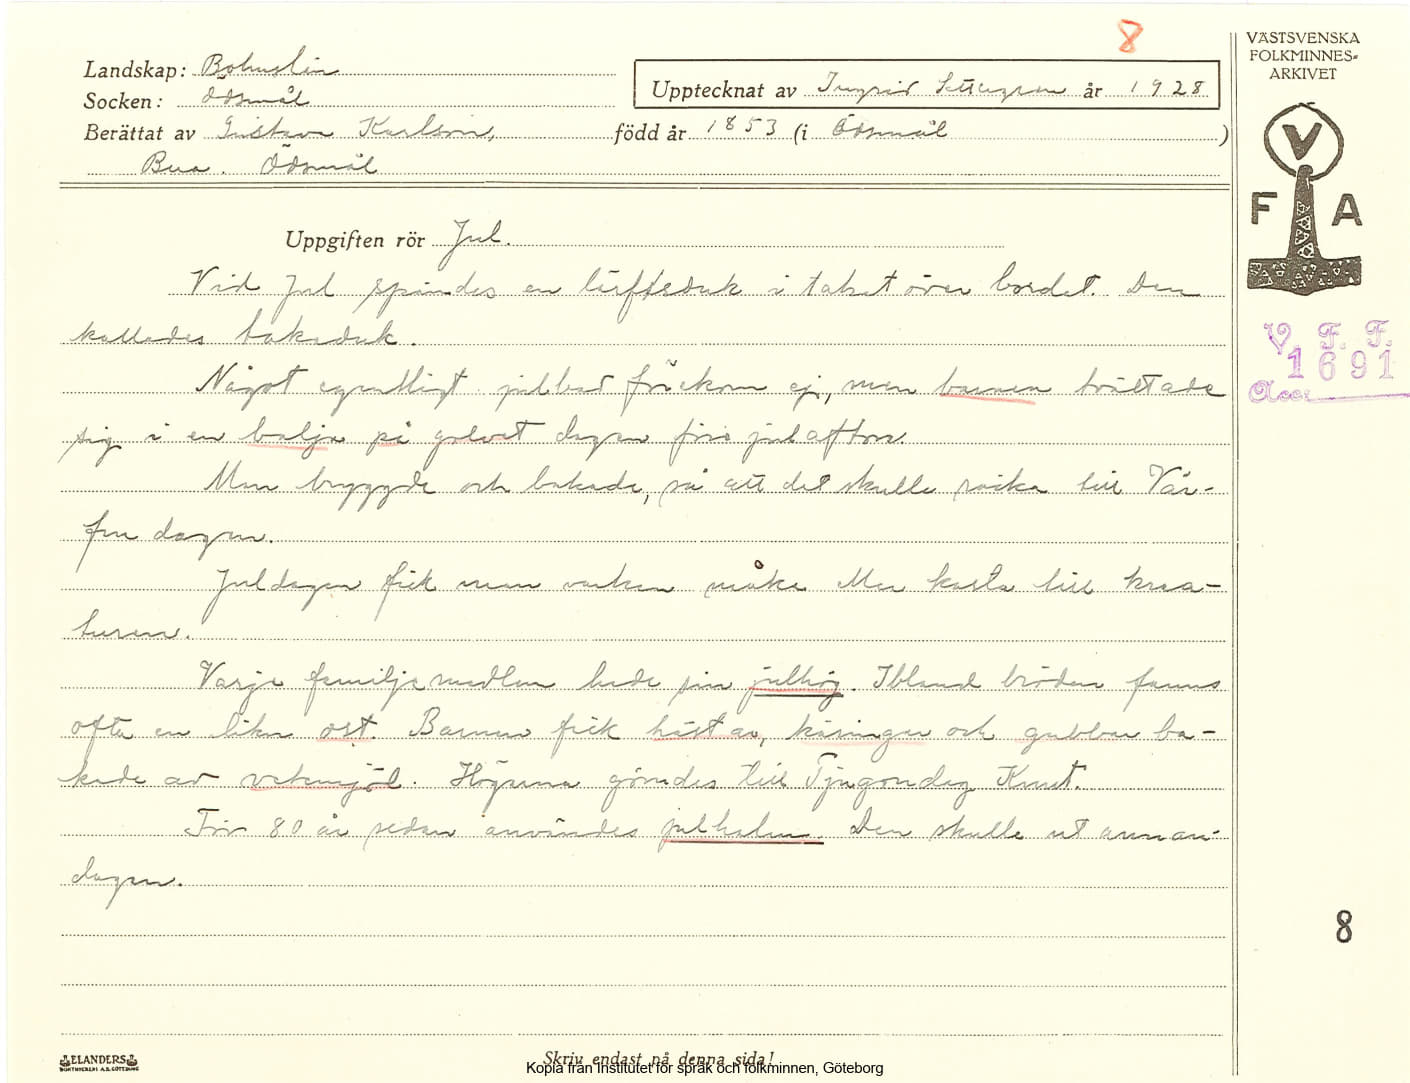 8
VÄSTSVENSKA
FOLKMINNES=
ARKIVET
Landskap: Bohuslän
Socken: Ödsmål
Upptecknat av Ingrid år 1928
Berättat av Gustava Karlson, född år 1853 (i Ödsmål)
Bua. Ödsmål
V
F A
Uppgiften rör Jul.
Vid Jul spändes en lärftsduk i taket över bordet. Den
kallades takeduk.
Något egentligt julbad förekom ej, men barnen tvättade
sig i en balja på golvet dagen före julafton.
Man bryggde och bakade, så att det skulle räcka till Vår-
fru dagen.
Juldagen fick man varken måka eller kasta till krea-
turen.
Varje familjemedlem hade sin julhög. Ibland bröden fanns
ofta en liten ost. Barnen fick hästar, käringar och gubbar ba-
kade av vetemjöl. Högarna gömdes till Tjugondag Knut.
För 80 år sedan användes julhalm. Den skulle ut annan-
dagen.
V. F. F.
1691
Acc.
8
ELANDERS
BOKTRYCKERI A.B. GÖTEBORG
Skriv endast på denna sida!
Kopia från Institutet för språk och folkminnen, Göteborg